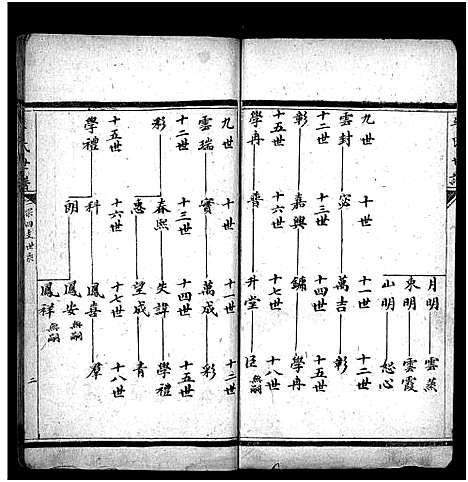 月明 雲蒸
東明 雲霞
山明 恕心
九世 十世 十一世 十二世
雲封 宓 萬吉 彰
十二世 十三世 十四世 十五世
彰 嘉興 鏞 學冉
十五世 十六世 十七世 十八世
學冉 普 升堂 臣無嗣
九世 十世 十一世 十二世
雲瑞 實 萬成 彩
十二世 十三世 十四世 十五世
彩 春熙 失諱 學禮
惠 望成 青
十五世 十六世 十七世 十八世
學禮 科 鳳喜 羣
朗 鳳安無嗣
鳳祥無嗣
二